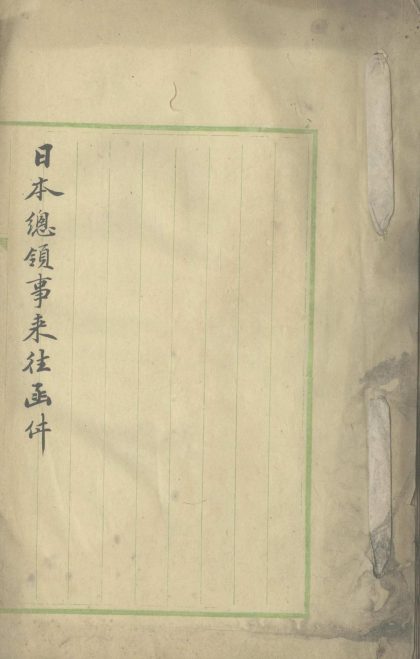 日本總領事来往函件